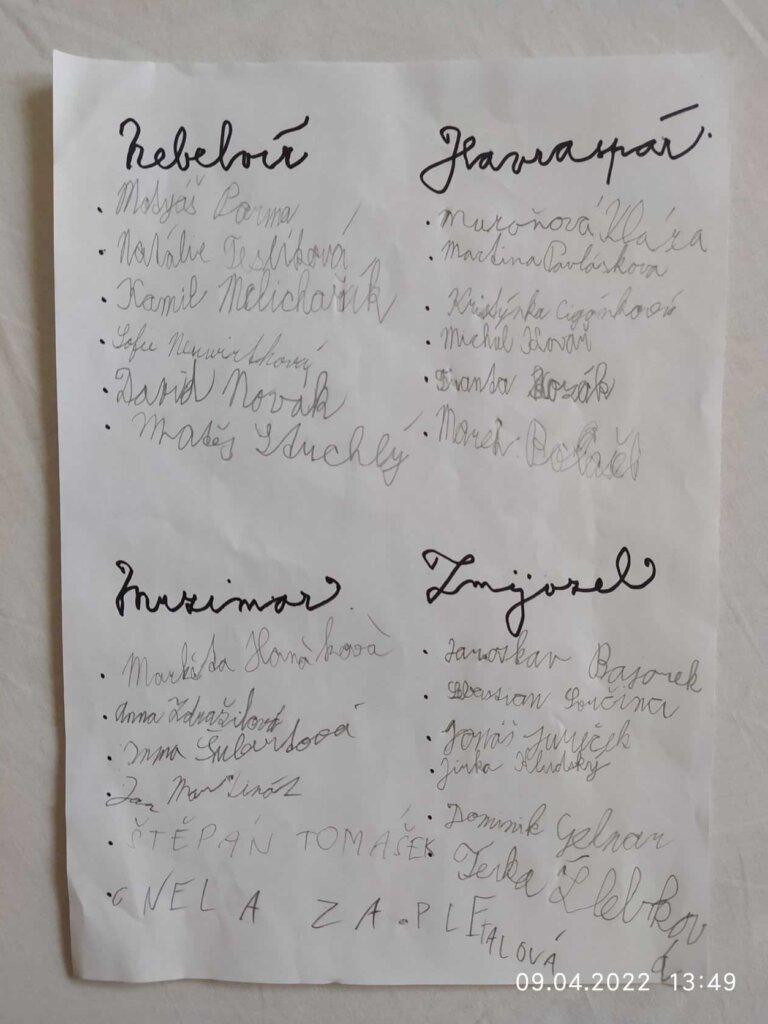 Nebelvír
Matyáš Parma
Natálie Teslíková
Kamil Melichařík
Sofie Neuwirthová
David Novák
Matěs Stuchlý
Havraspár
Muroňová Klára
Martina Pavláskova
Kristýnka
Michal Kovář
Franta Kozák
Marek
Mrzimor
Markéta Hanáková
Anna Zdražilová
Emma Šubartová
Jan Martinát
ŠTĚPÁN TOMÁŠEK
NELA ZAPLETALOVÁ
Zmijozel
Jaroslav Bajorek
Sebastian Sorčina
Jonáš Juryček
Jirka Kludský
Dominik Gelnar
Terka Žlebková
09.04.2022 13:49